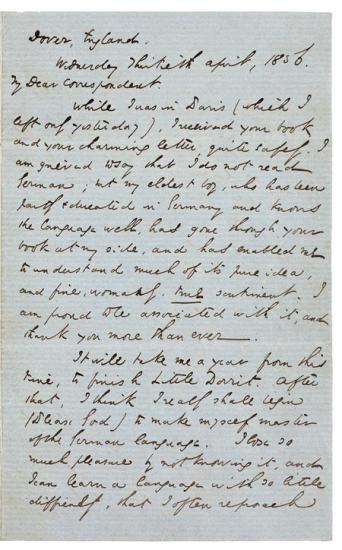 Dover, England.
Wednesday Thirtieth April, 1856.
My Dear Correspondent.
While I was in Paris (which I
left only yesterday), I received your book
and your charming letter quite safely. I
am grieved to say that I do not read
German; but my eldest boy, who has been
partly educated in Germany and knows
the language well, has gone through your
book at my side, and has enabled me
to understand much of its pure idea,
and fine, womanly, true sentiment. I
am proud to be associated with it, and
thank you more than ever.
It will take me a year from this
time, to finish Little Dorrit. After
that, I think I really shall begin
(Please God) to make myself master
of the German language. I lose so
much pleasure by not knowing it, and
I can learn a language with so little
difficulty, that I often reproach